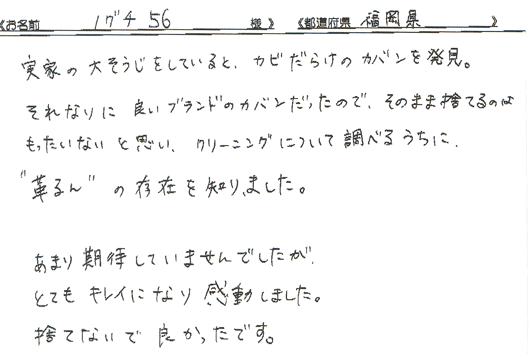 《お名前 イグチ 56 様》 《都道府県 福岡県 》
実家の大そうじをしていると、カビだらけのカバンを発見。
それなりに良いブランドのカバンだったので、そのまま捨てるのは
もったいないと思い、クリーニングについて調べるうちに、
"革るん"の存在を知りました。
あまり期待していませんでしたが、
とてもキレイになり感動しました。
捨てないで良かったです。